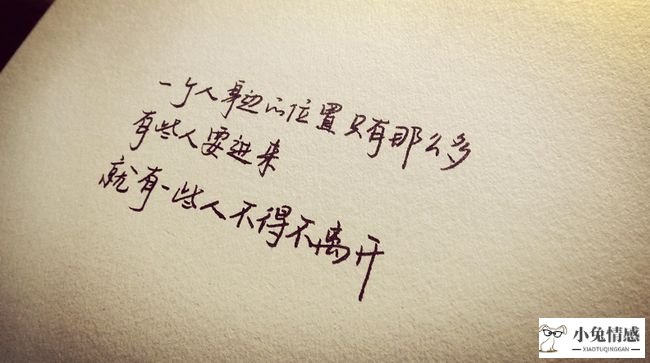 一个人身边的位置只有那么多
有些人要进来
就有一些人不得不离开
小兔情感
XIAOTUQINGGAN